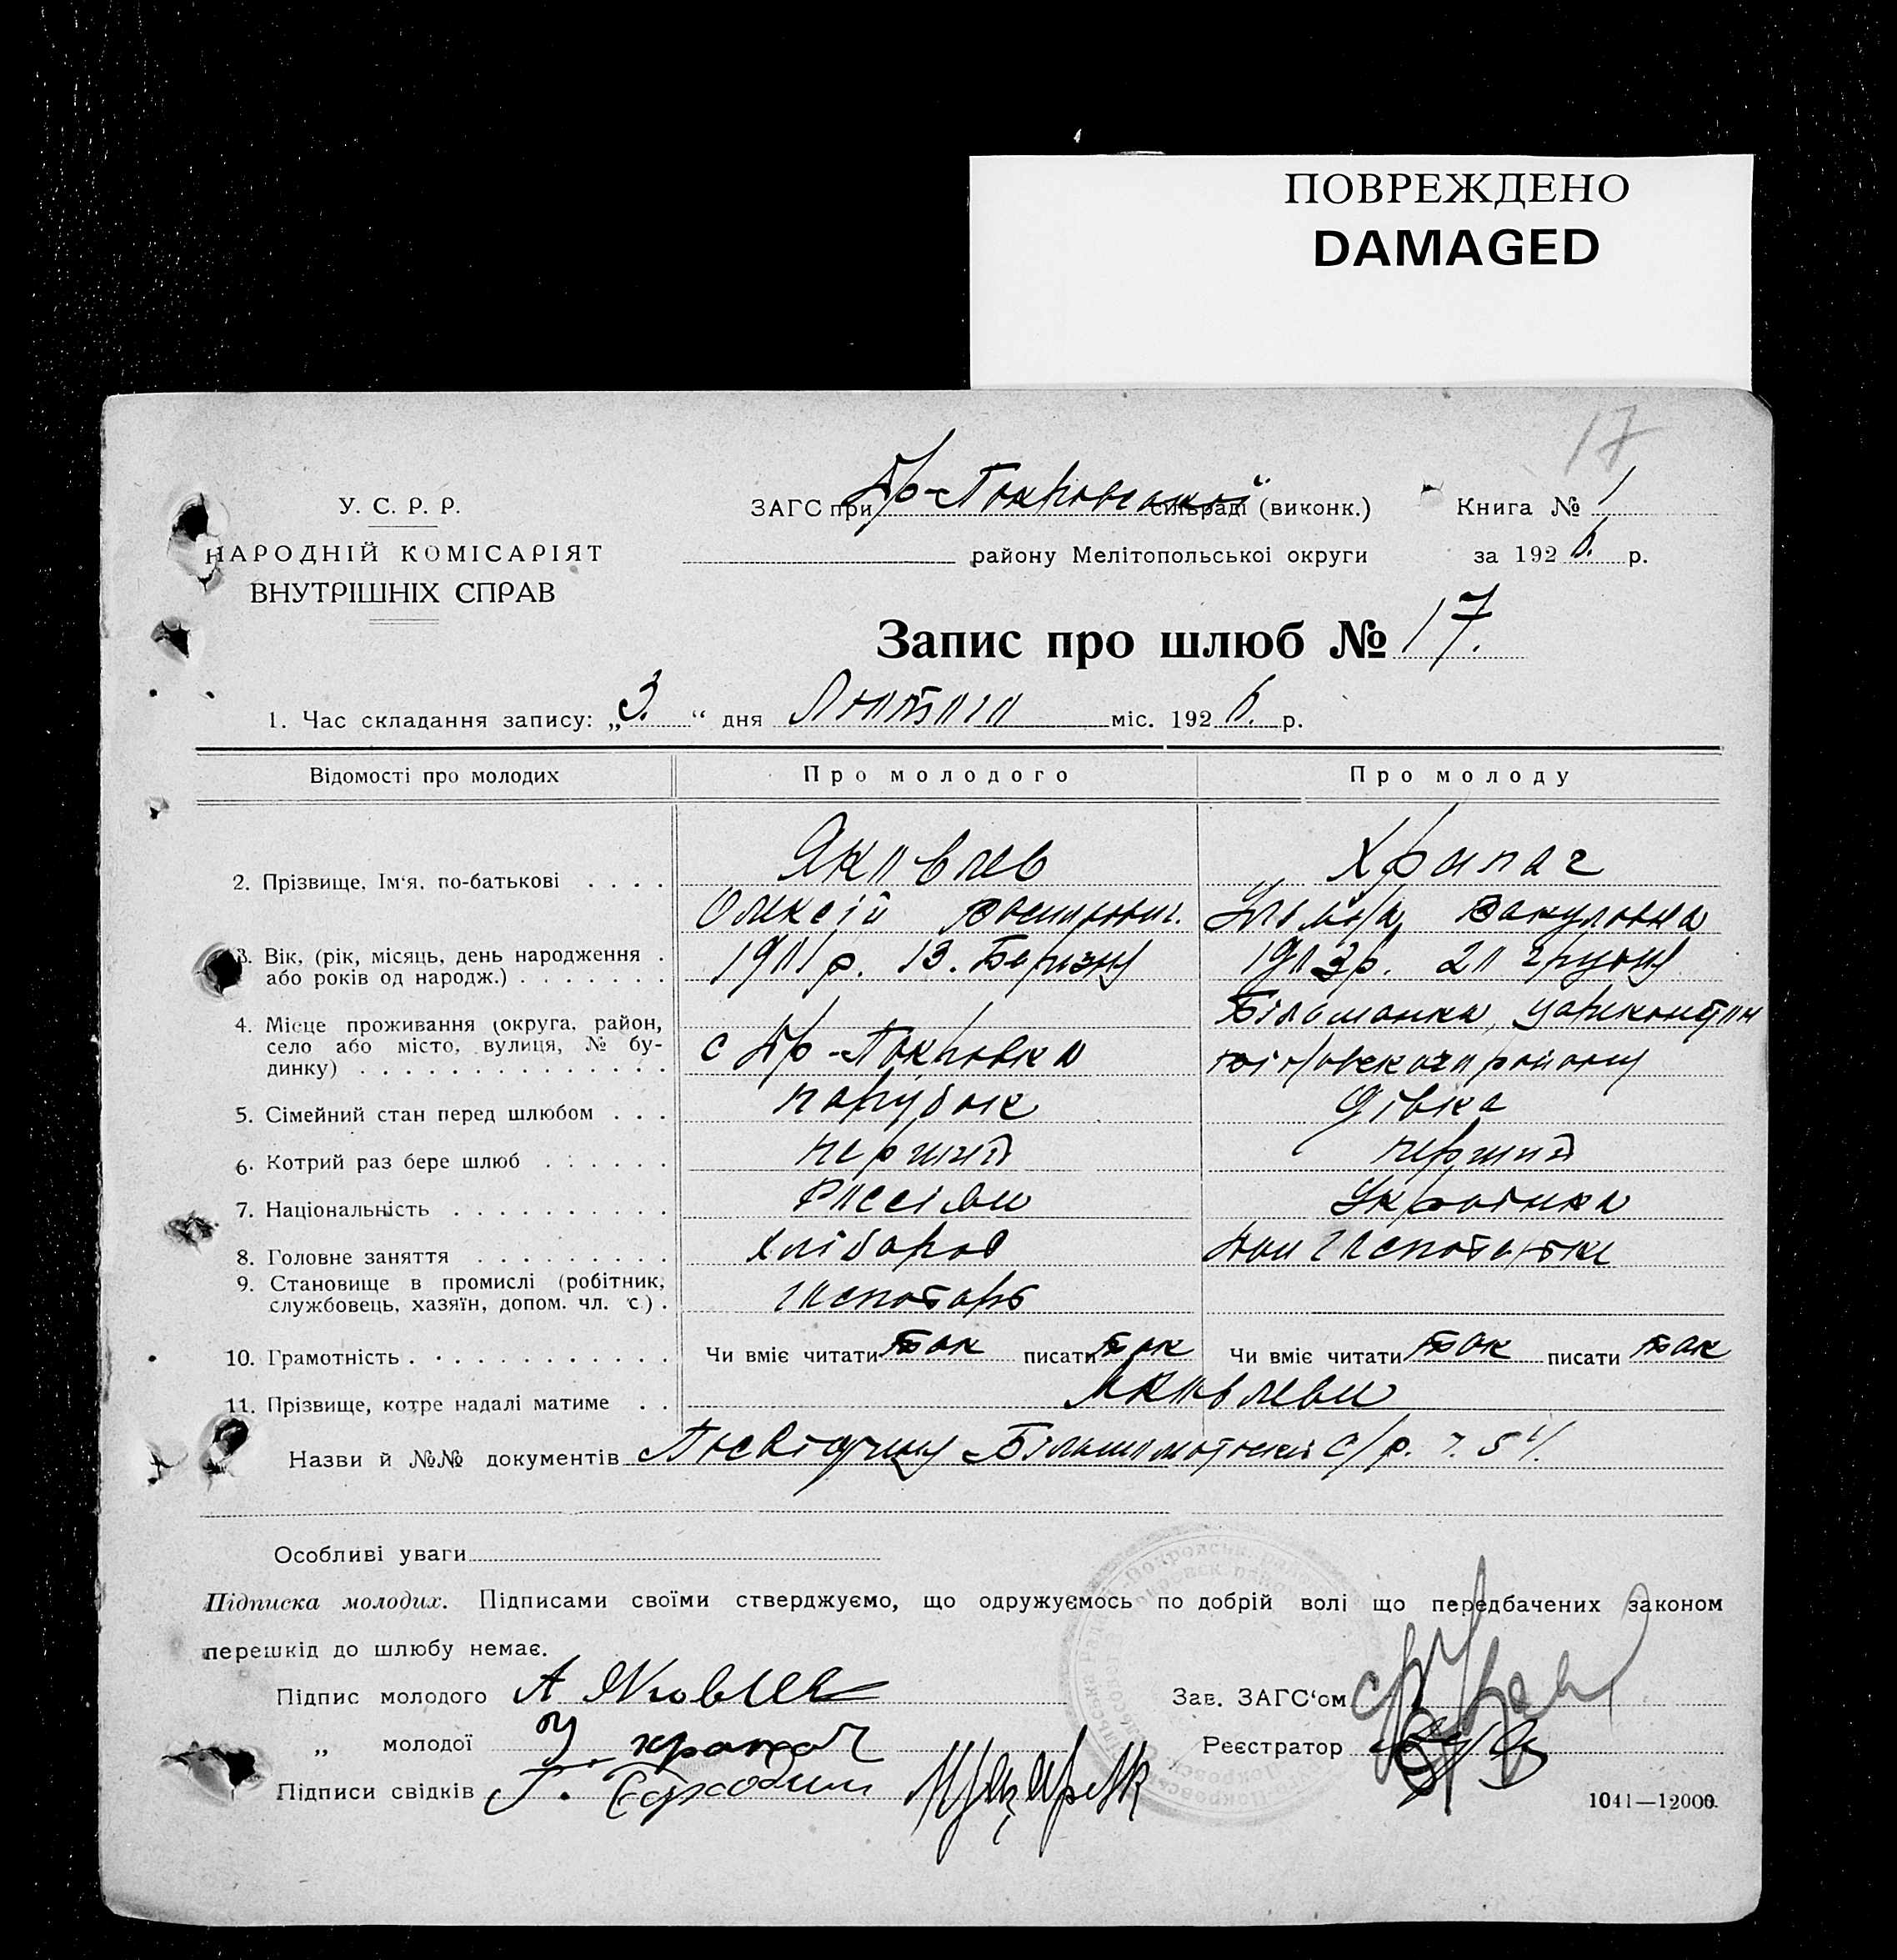 ПОВРЕЖДЕНО
DAMAGED
17
У. С. Р. Р.
НАРОДНІЙ КОМІСАРІЯТ
ВНУТРІШНІХ СПРАВ
ЗАГС при Др-Покровської сільраді (виконк.)
Книга № 1
району Мелітопольської округи
за 1926. р.
Запис про шлюб № 17.
1. Час складання запису: „3.“ дня Лютого міс. 1926. р.
Відомості про молодих
Про молодого
Про молоду
2. Прізвище, Ім‘я, по-батькові . . . .
Яковлев
Храпач
Олексій Васильович.
Вакуловна
3. Вік, (рік, місяць, день народження .
або років од народж.) . . . . . . .
1901 р. 13. Березня
1903 р. 20 грудня
4. Місце проживання (округа, район,
село або місто, вулиця, № бу-
динку) . . . . . . . . . . . . . .
с Др-Покровка
району
5. Сімейний стан перед шлюбом . . .
парубок
дівка
6. Котрий раз бере шлюб . . . . . .
перший
перший
7. Національність . . . . . . . . . .
Українка
8. Головне заняття . . . . . . . . .
хлібороб
Дом Господарка
9. Становище в промислі (робітник,
службовець, хазяїн, допом. чл. с.) .
господарь
10. Грамотність . . . . . . . . . . . .
Чи вміє читати так писати так
Чи вміє читати так писати так
11. Прізвище, котре надалі матиме . .
Яковлеви
Назви й №№ документів Посвідчення с/р.
Особливі уваги
Підписка молодих. Підписами своїми стверджуємо, що одружуємось по добрій волі що передбачених законом
перешкід до шлюбу немає.
Підпис молодого А Яковлев
Зав. ЗАГС‘ом
„ молодої Храпач
Реєстратор
Підписи свідків
1041—12000.